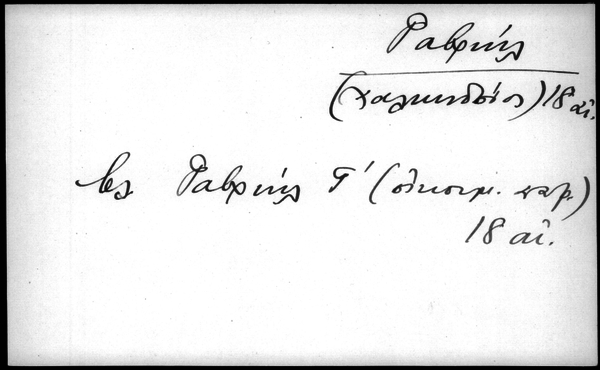 Γαβριήλ
(Χαλκηδόνος) 18 αἰ.
βλ. Γαβριήλ Γ' (οἰκουμ. πατρ.)
18 αἰ.